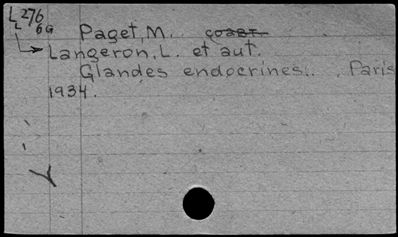 L276
L 6G
Paget, M.
Langeron, L. et aut.
Glandes endocrines.. . Paris
1934.